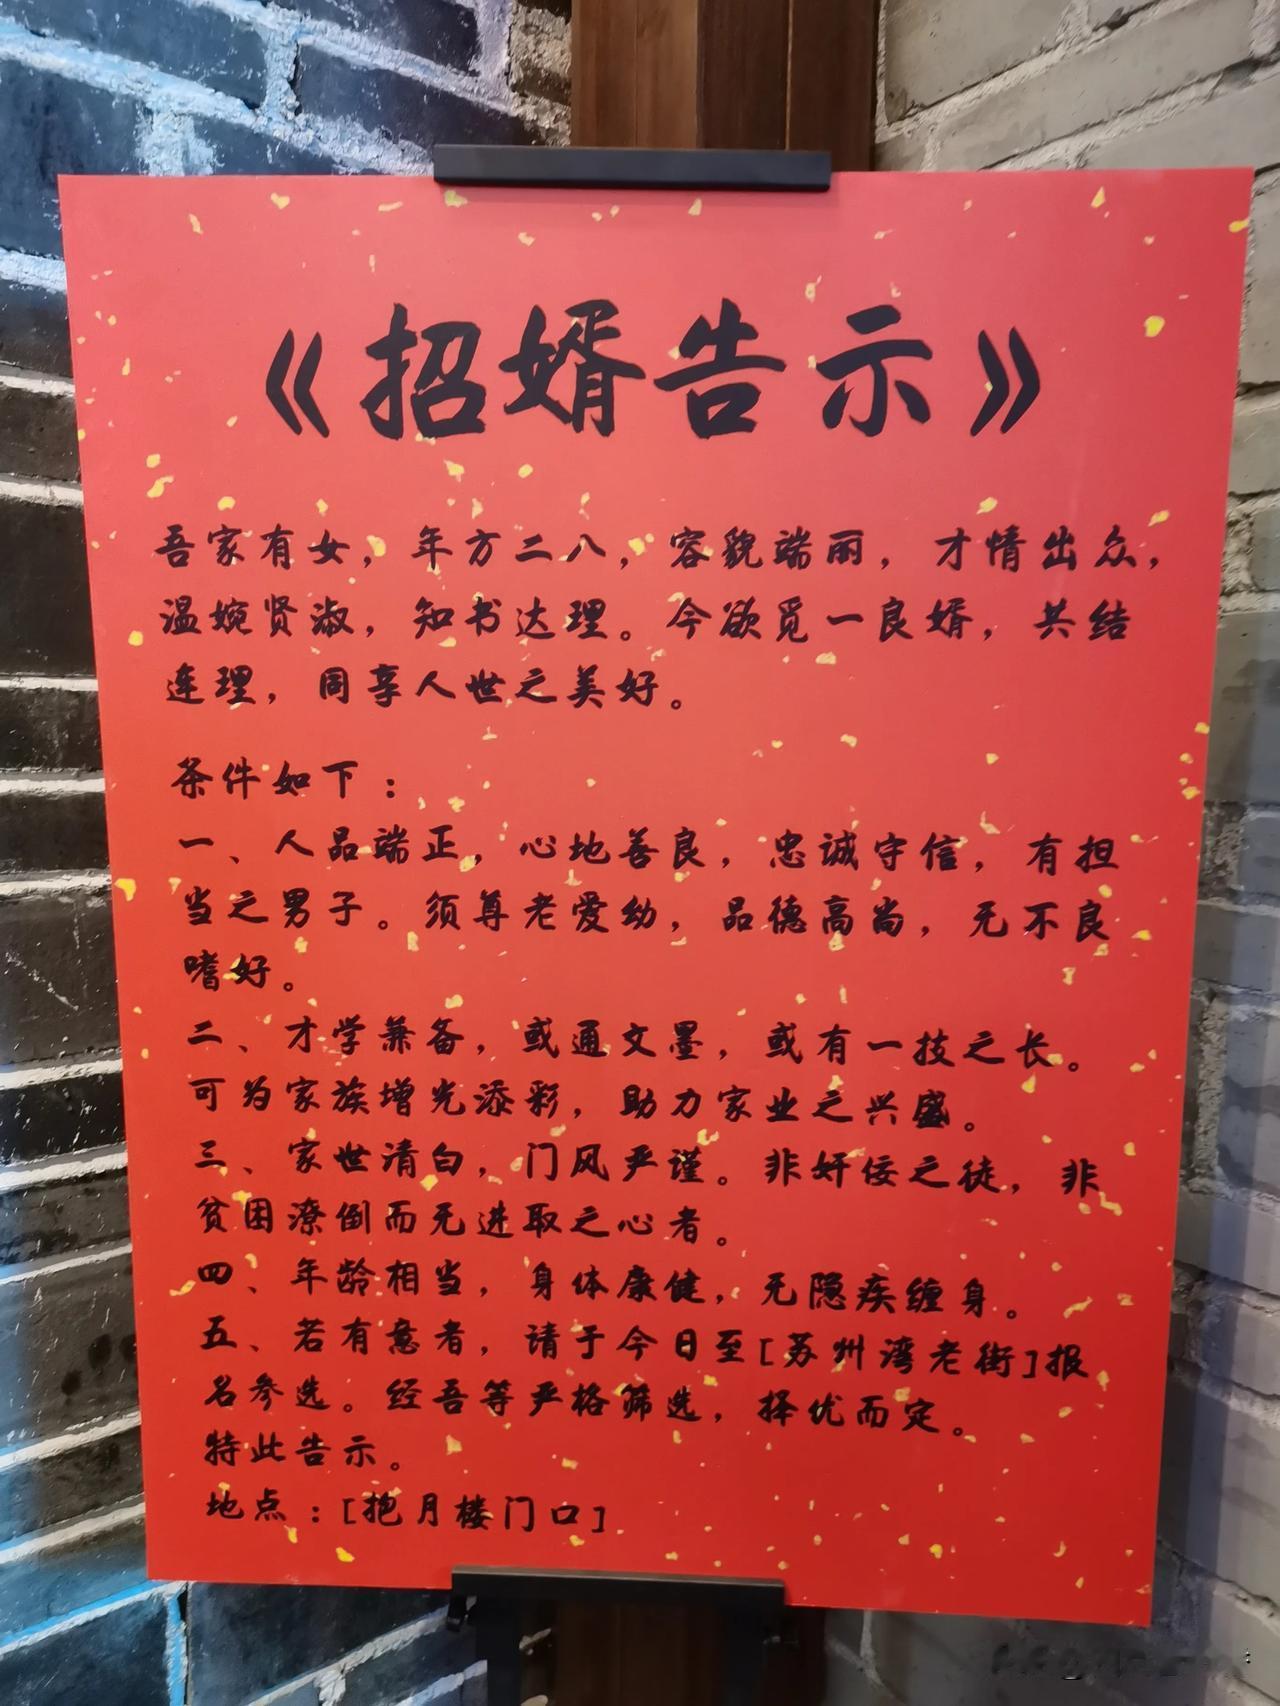 《招婿告示》
吾家有女，年方二八，容貌端丽，才情出众，
温婉贤淑，知书达理。今欲觅一良婿，共结
连理，同享人世之美好。
条件如下：
一、人品端正，心地善良，忠诚守信，有担
当之男子。须尊老爱幼，品德高尚，无不良
嗜好。
二、才学兼备，或通文墨，或有一技之长。
可为家族增光添彩，助力家业之兴盛。
三、家世清白，门风严谨。非奸佞之徒，非
贫困潦倒而无进取之心者。
四、年龄相当，身体康健，无隐疾缠身。
五、若有意者，请于今日至[苏州湾老街]报
名参选。经吾等严格筛选，择优而定。
特此告示。
地点：[抱月楼门口]